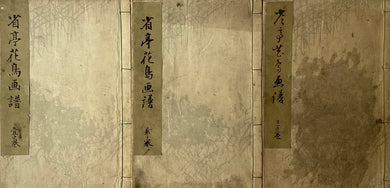 省亭花鳥画譜
壱之巻
省亭花鳥画譜
弐之巻
省亭花鳥画譜